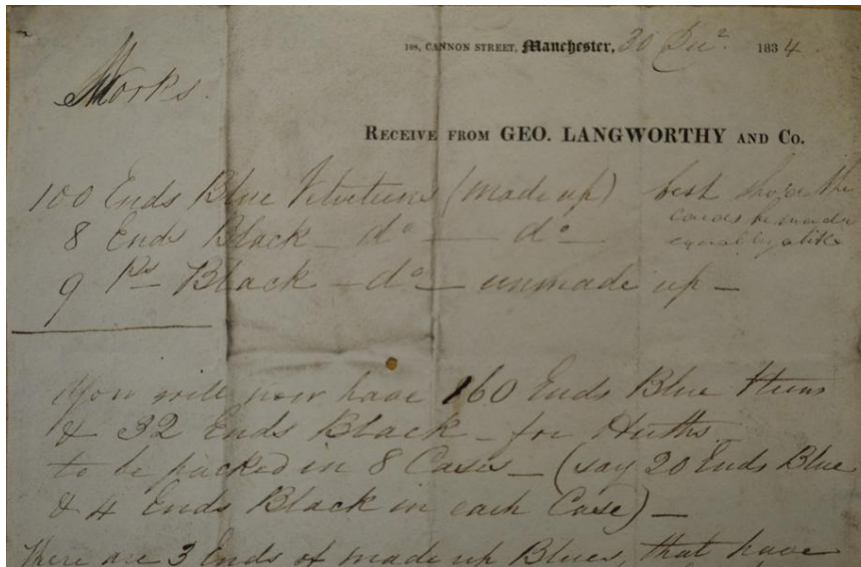 108, CANNON STREET, Manchester, 30 Decr. 1834
Works.
RECEIVE FROM GEO. LANGWORTHY AND CO.
100 Ends Blue Velveteens (made up) best the
8 Ends Black – do – do – be made
9 Ps – Black – do – unmade up – equally alike
You will now have 160 Ends Blue
& 32 Ends Black – for Huths
to be packed in 8 Cases – (say 20 Ends Blue
& 4 Ends Black in each Case) –
There are 3 Ends of made up Blues, that have